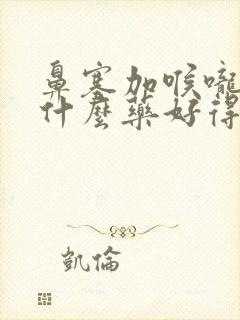 鼻塞加喉嚨
什麼藥好得
凱倫